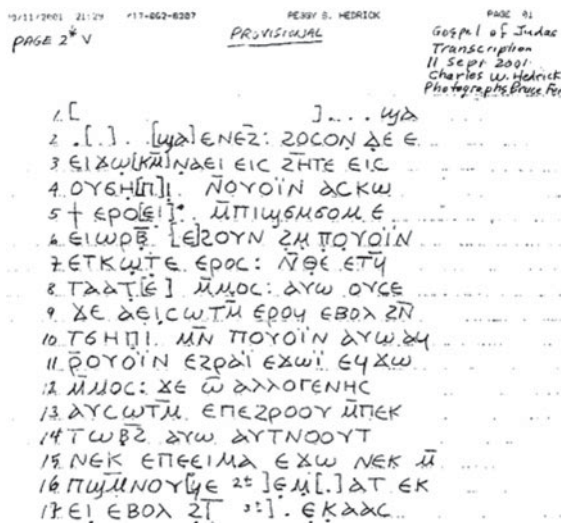 21:29 PEGGY S. HEDRICK PAGE 01
PAGE 2* V PROVISIONAL Gospel of Judas
Transcription
11 Sept 2001
Charles W. Hedrick
Photographs Bruce Fer
1. [ ] . . . . ϣⲁ
2 . [ . ] . [ϣⲁ]ⲉⲛⲉϩ̄: ϩⲟⲥⲟⲛ ⲇⲉ ⲉ
3 ⲉⲓϫⲱ[ⲕⲙ̄]ⲛⲁⲉⲓ ⲉⲓⲥ ϩⲏⲏⲧⲉ ⲉⲓⲥ
4 ⲟⲩϭⲏ[ⲡ]ⲓ. ⲛ̄ⲟⲩⲟⲓ̈ⲛ ⲁⲥⲕⲱ
5 ϯ ⲉⲣⲟ[ⲉⲓ]* ⲙ̄ⲡⲓϣϭⲙϭⲟⲙ ⲉ
6 ⲉⲓⲱⲣⲃ̄ [ⲉ]ϩⲟⲩⲛ ϩⲙ ⲡⲟⲩⲟⲓ̈ⲛ
7 ⲉⲧⲕⲱⲧⲉ ⲉⲣⲟⲥ: ⲛ̄ⲑⲉ ⲉⲧϥ̄
8 ⲧⲁⲁⲧ[ⲉ] ⲙ̄ⲙⲟⲥ: ⲁⲩⲱ ⲟⲩⲥⲉ
9 ϫⲉ ⲁⲉⲓⲥⲱⲧⲙ̄ ⲉⲣⲟϥ ⲉⲃⲟⲗ ϩⲛ̄
10 ⲧϭⲏⲡⲓ. ⲙⲛ̄ ⲡⲟⲩⲟⲓ̈ⲛ ⲁⲩⲱ ⲁϥ
11 ⲣ̄ⲟⲩⲟⲓ̈ⲛ ⲉϩⲣⲁⲓ̈ ⲉϫⲱⲓ̈ ⲉϥϫⲱ
12 ⲙ̄ⲙⲟⲥ: ϫⲉ ⲱ̄ ⲁⲗⲗⲟⲅⲉⲛⲏⲥ
13 ⲁⲩⲥⲱⲧⲙ̄ ⲉⲡⲉϩⲣⲟⲟⲩ ⲙ̄ⲡⲉⲕ
14 ⲧⲱⲃϩ̄ ⲁⲩⲱ ⲁⲩⲧⲛⲟⲟⲩⲧ
15 ⲛⲉⲕ ⲉⲡⲉⲉⲓⲙⲁ ⲉϫⲱ ⲛⲉⲕ ⲙ̄
16 ⲡϣⲙ̄ⲛⲟⲩ[ϥⲉ 2±]ⲉⲙ[.]ⲁⲧ ⲉⲕ
17 ⲉⲓ ⲉⲃⲟⲗ ϩ[ 3±]. ⲉⲕⲁⲁⲥ